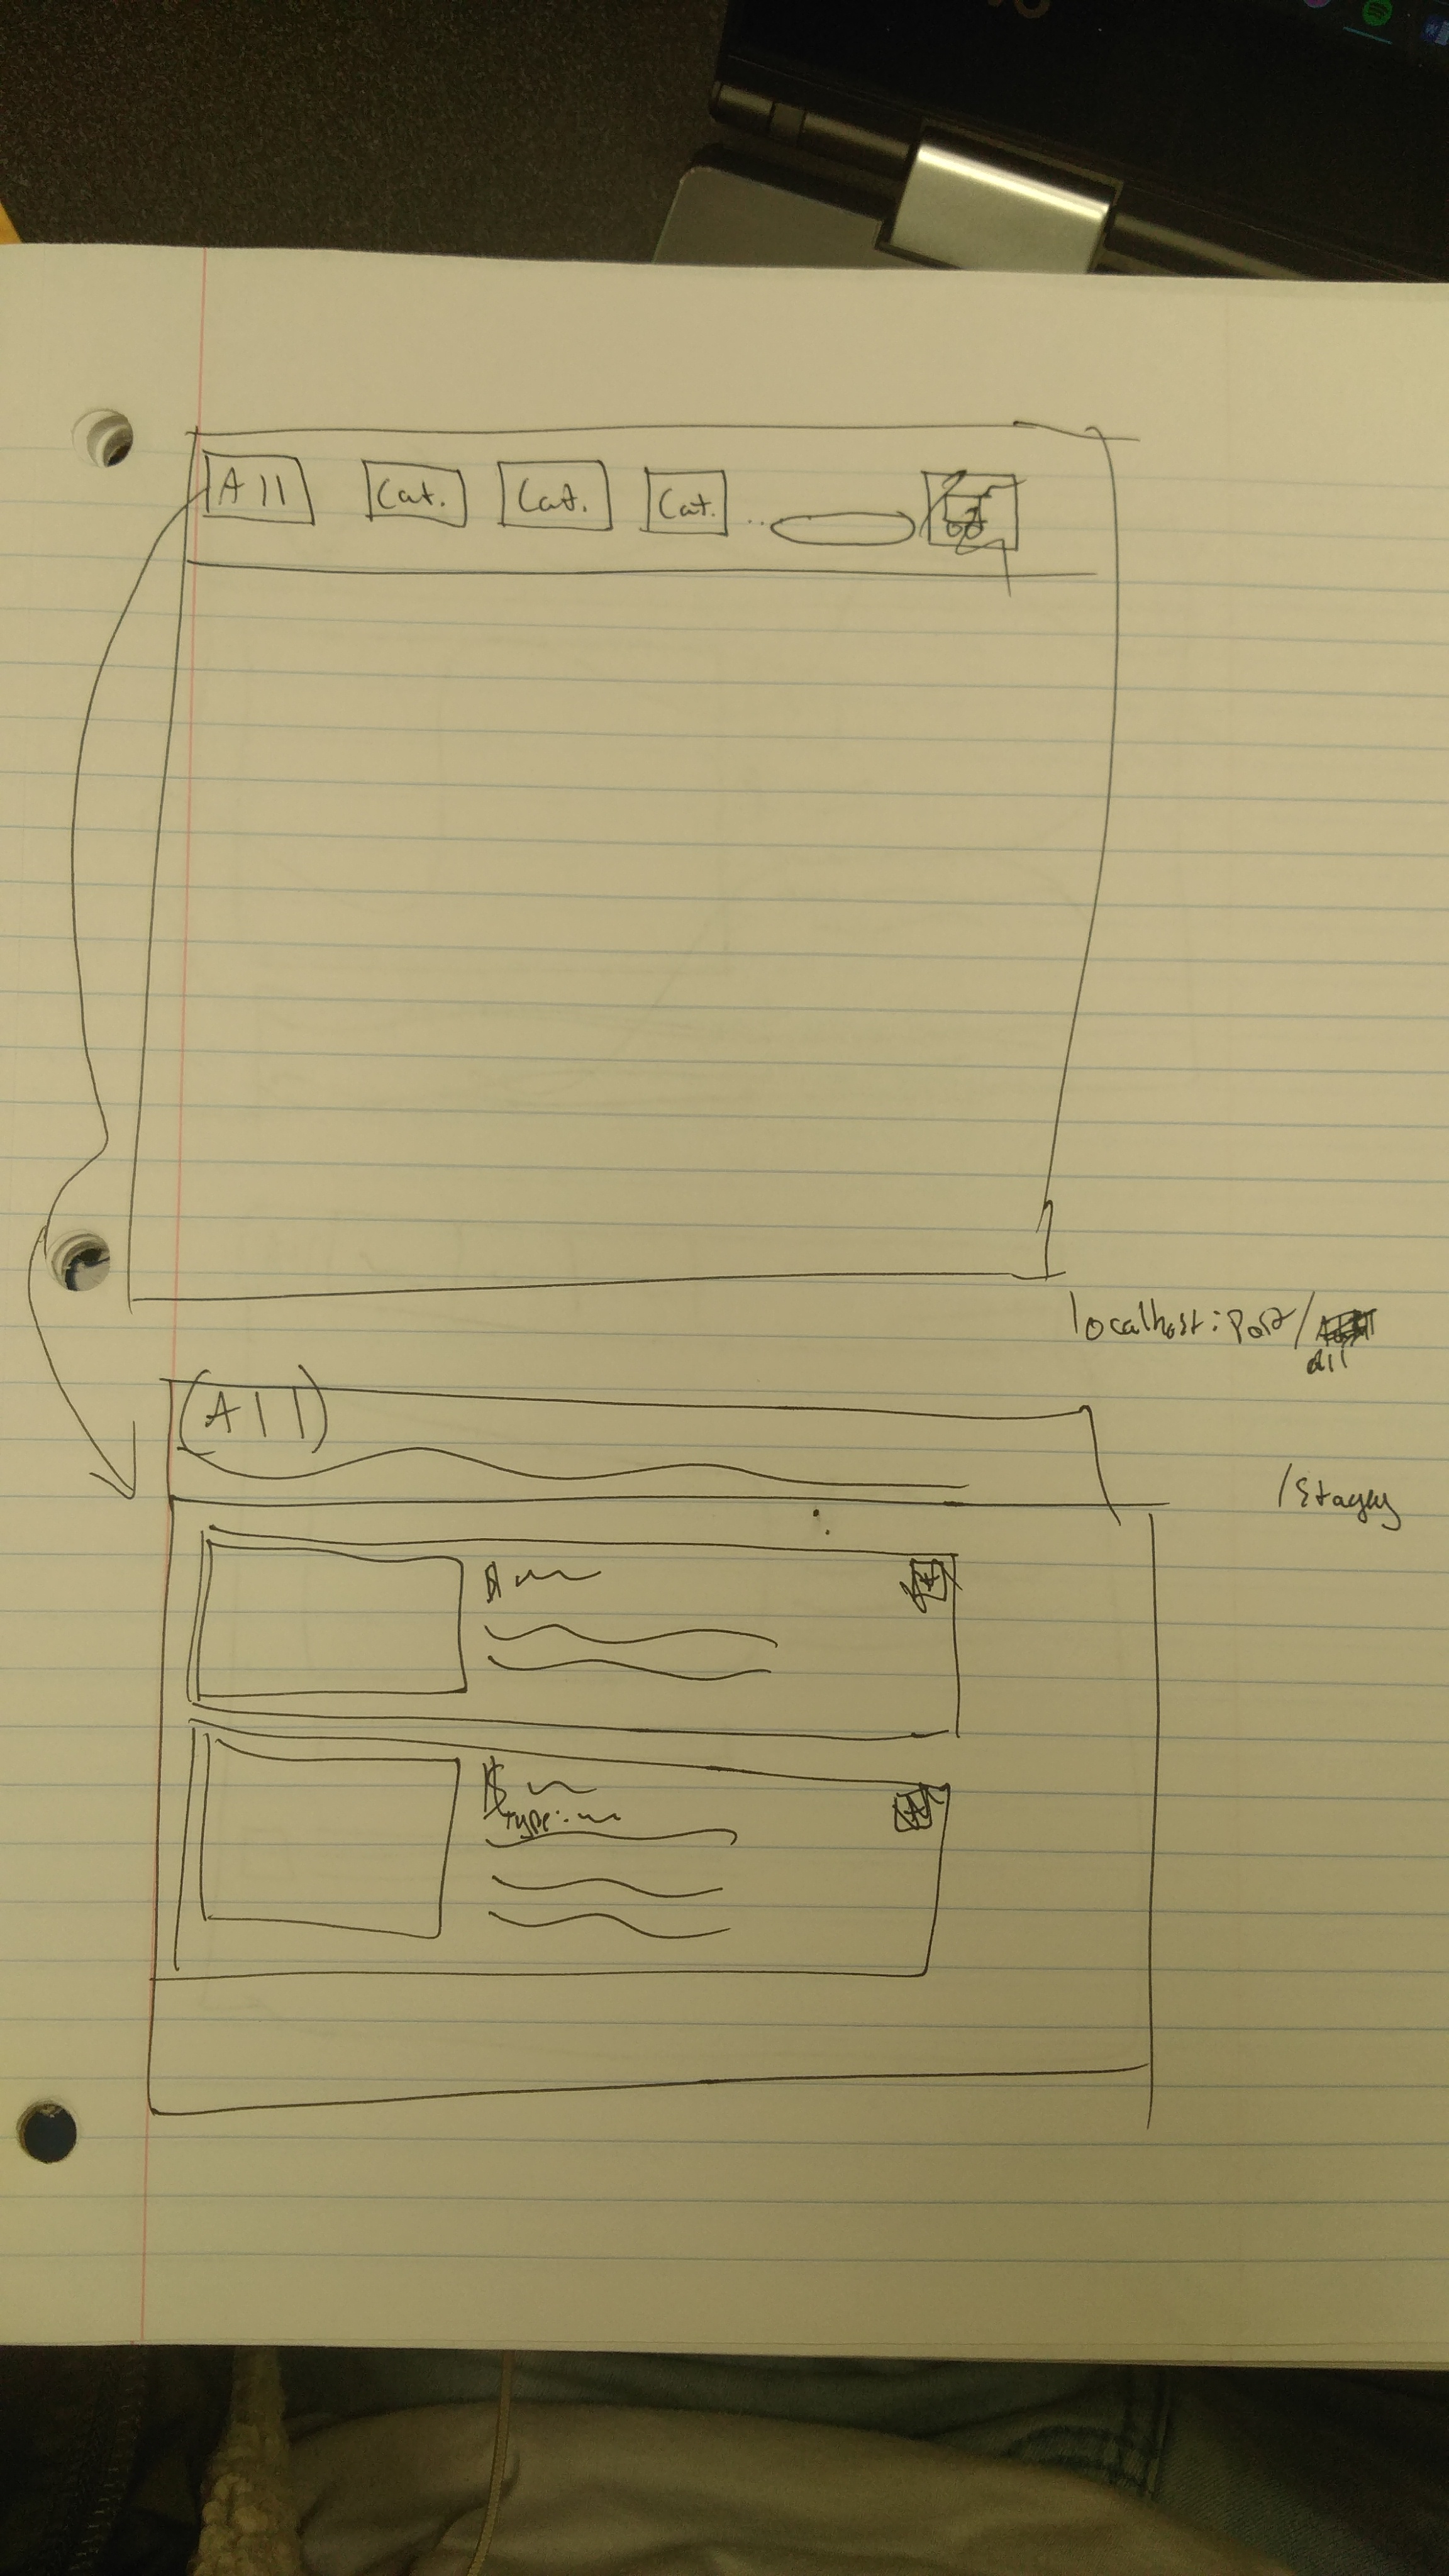 All Cat. Cat. Cat. ...
localhost:Port/
all
(All)
A
B
type: